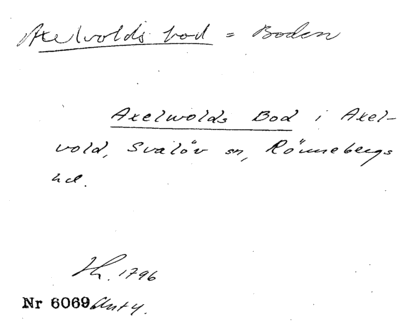 Axelvolds bod = Boden
Axelwolds Bod i Axel-
vold, Svalöv sn, Rönnebergs
hd.
1796
Nr 6069